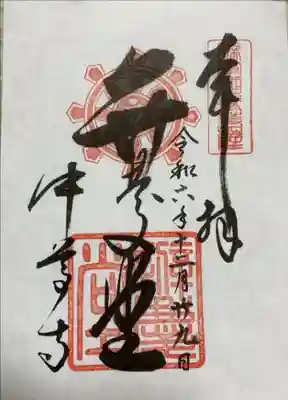 奉拝
令和六年十二月廿九日
弁慶堂
中尊寺